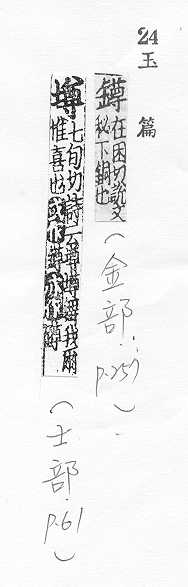 24
玉篇
鐏 在困切說文
秘下銅也
(金部. p.257)
墫 七旬切詩云墫墫舞我爾
惟喜也或作蹲亦作
(士部. p.61)